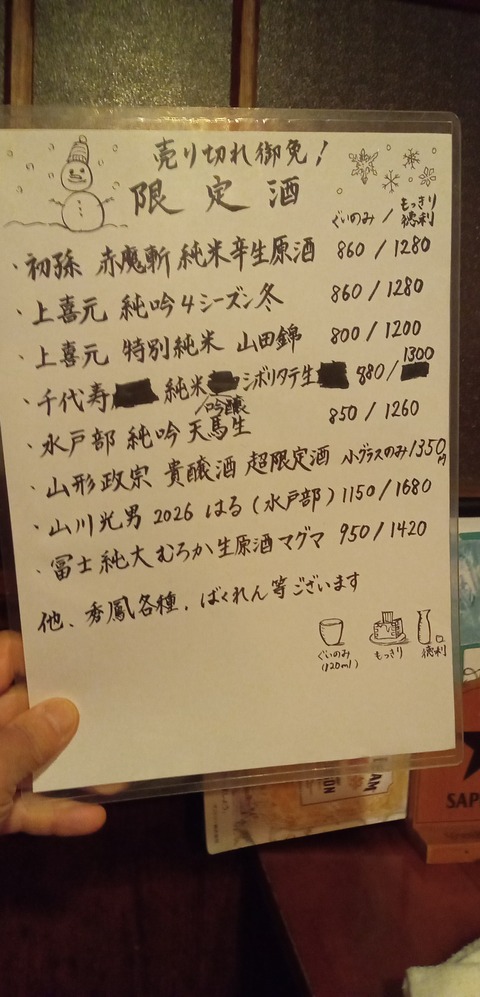 売り切れ御免!
限定酒
ぐいのみ / もっきり 徳利
・初孫 赤魔斬 純米辛生原酒 860 / 1280
・上喜元 純吟4シーズン冬 860 / 1280
・上喜元 特別純米 山田錦 800 / 1200
・千代寿 純米吟醸 シボリタテ生 880 / 1300
・水戸部 純吟 天馬生 850 / 1260
・山形政宗 貴醸酒 超限定酒 小グラスのみ1350円
・山川光男 2026 はる(水戸部) 1150 / 1680
・冨士 純大 むろか生原酒マグマ 950 / 1420
他、秀鳳各種、ばくれん等ございます
ぐいのみ (120ml) もっきり 徳利
SAP